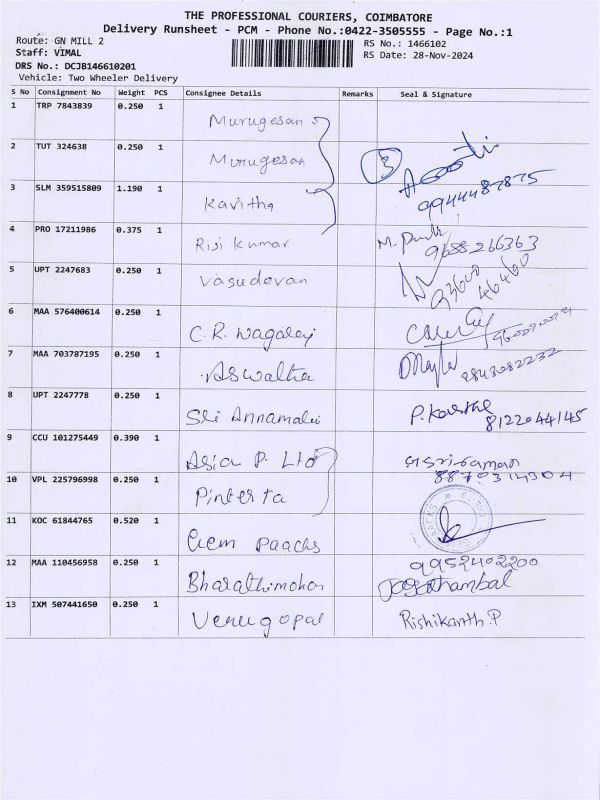 THE PROFESSIONAL COURIERS, COIMBATORE
Delivery Runsheet - PCM - Phone No.:0422-3505555 - Page No.:1
Route: GN MILL 2 RS No.: 1466102
Staff: VIMAL RS Date: 28-Nov-2024
DRS No.: DCJB146610201
Vehicle: Two Wheeler Delivery
S No Consignment No Weight PCS Consignee Details Remarks Seal & Signature
1 TRP 7843839 0.250 1 Murugesan
2 TUT 324638 0.250 1 Murugesan 3
3 SLM 359515809 1.190 1 Kavitha 9944487875
4 PRO 17211986 0.375 1 Risi Kumar 9688266363
5 UPT 2247683 0.250 1 Vasudevan 93600 46460
6 MAA 576400614 0.250 1 C.R.
7 MAA 703787195 0.250 1 Aswatha 9843082232
8 UPT 2247778 0.250 1 Sri Annamalai P. 8122044145
9 CCU 101275449 0.390 1 Asia P. Ltd
8870314304
10 VPL 225796998 0.250 1
11 KOC 61844765 0.520 1 Gem Paacks
12 MAA 110456958 0.250 1 Bharathimohan 9952402200
Jagathambal
13 IXM 507441650 0.250 1 Venugopal Rishikanth.P